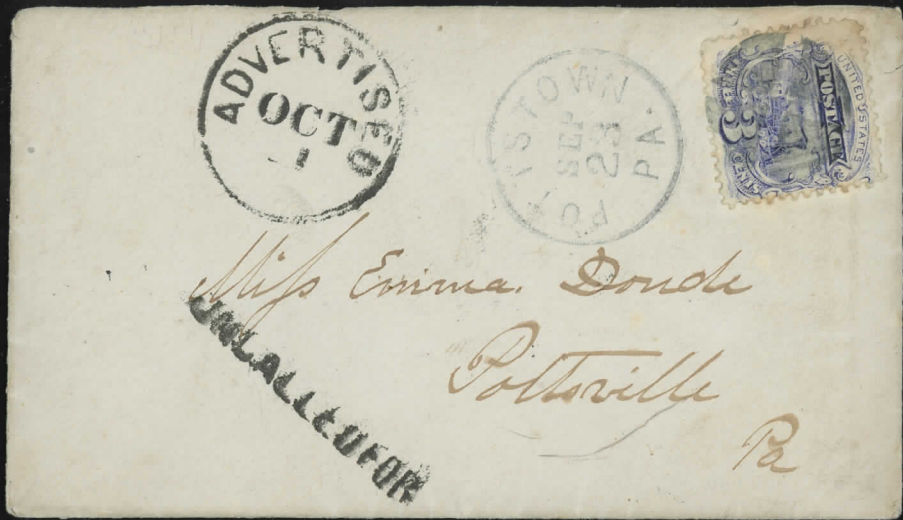 ADVERTISED
OCT
1
POTTSTOWN PA.
SEP
23
UNITED STATES
POSTAGE
3 3
Miss Emma Donde
Pottsville
Pa
UNCALLED FOR